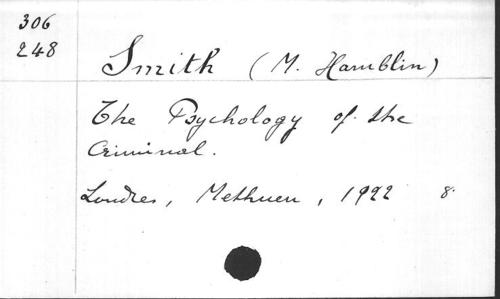 306
248
Smith (M. Hamblin)
The Psychology of the
Criminal.
Londres, Methuen, 1922 8º